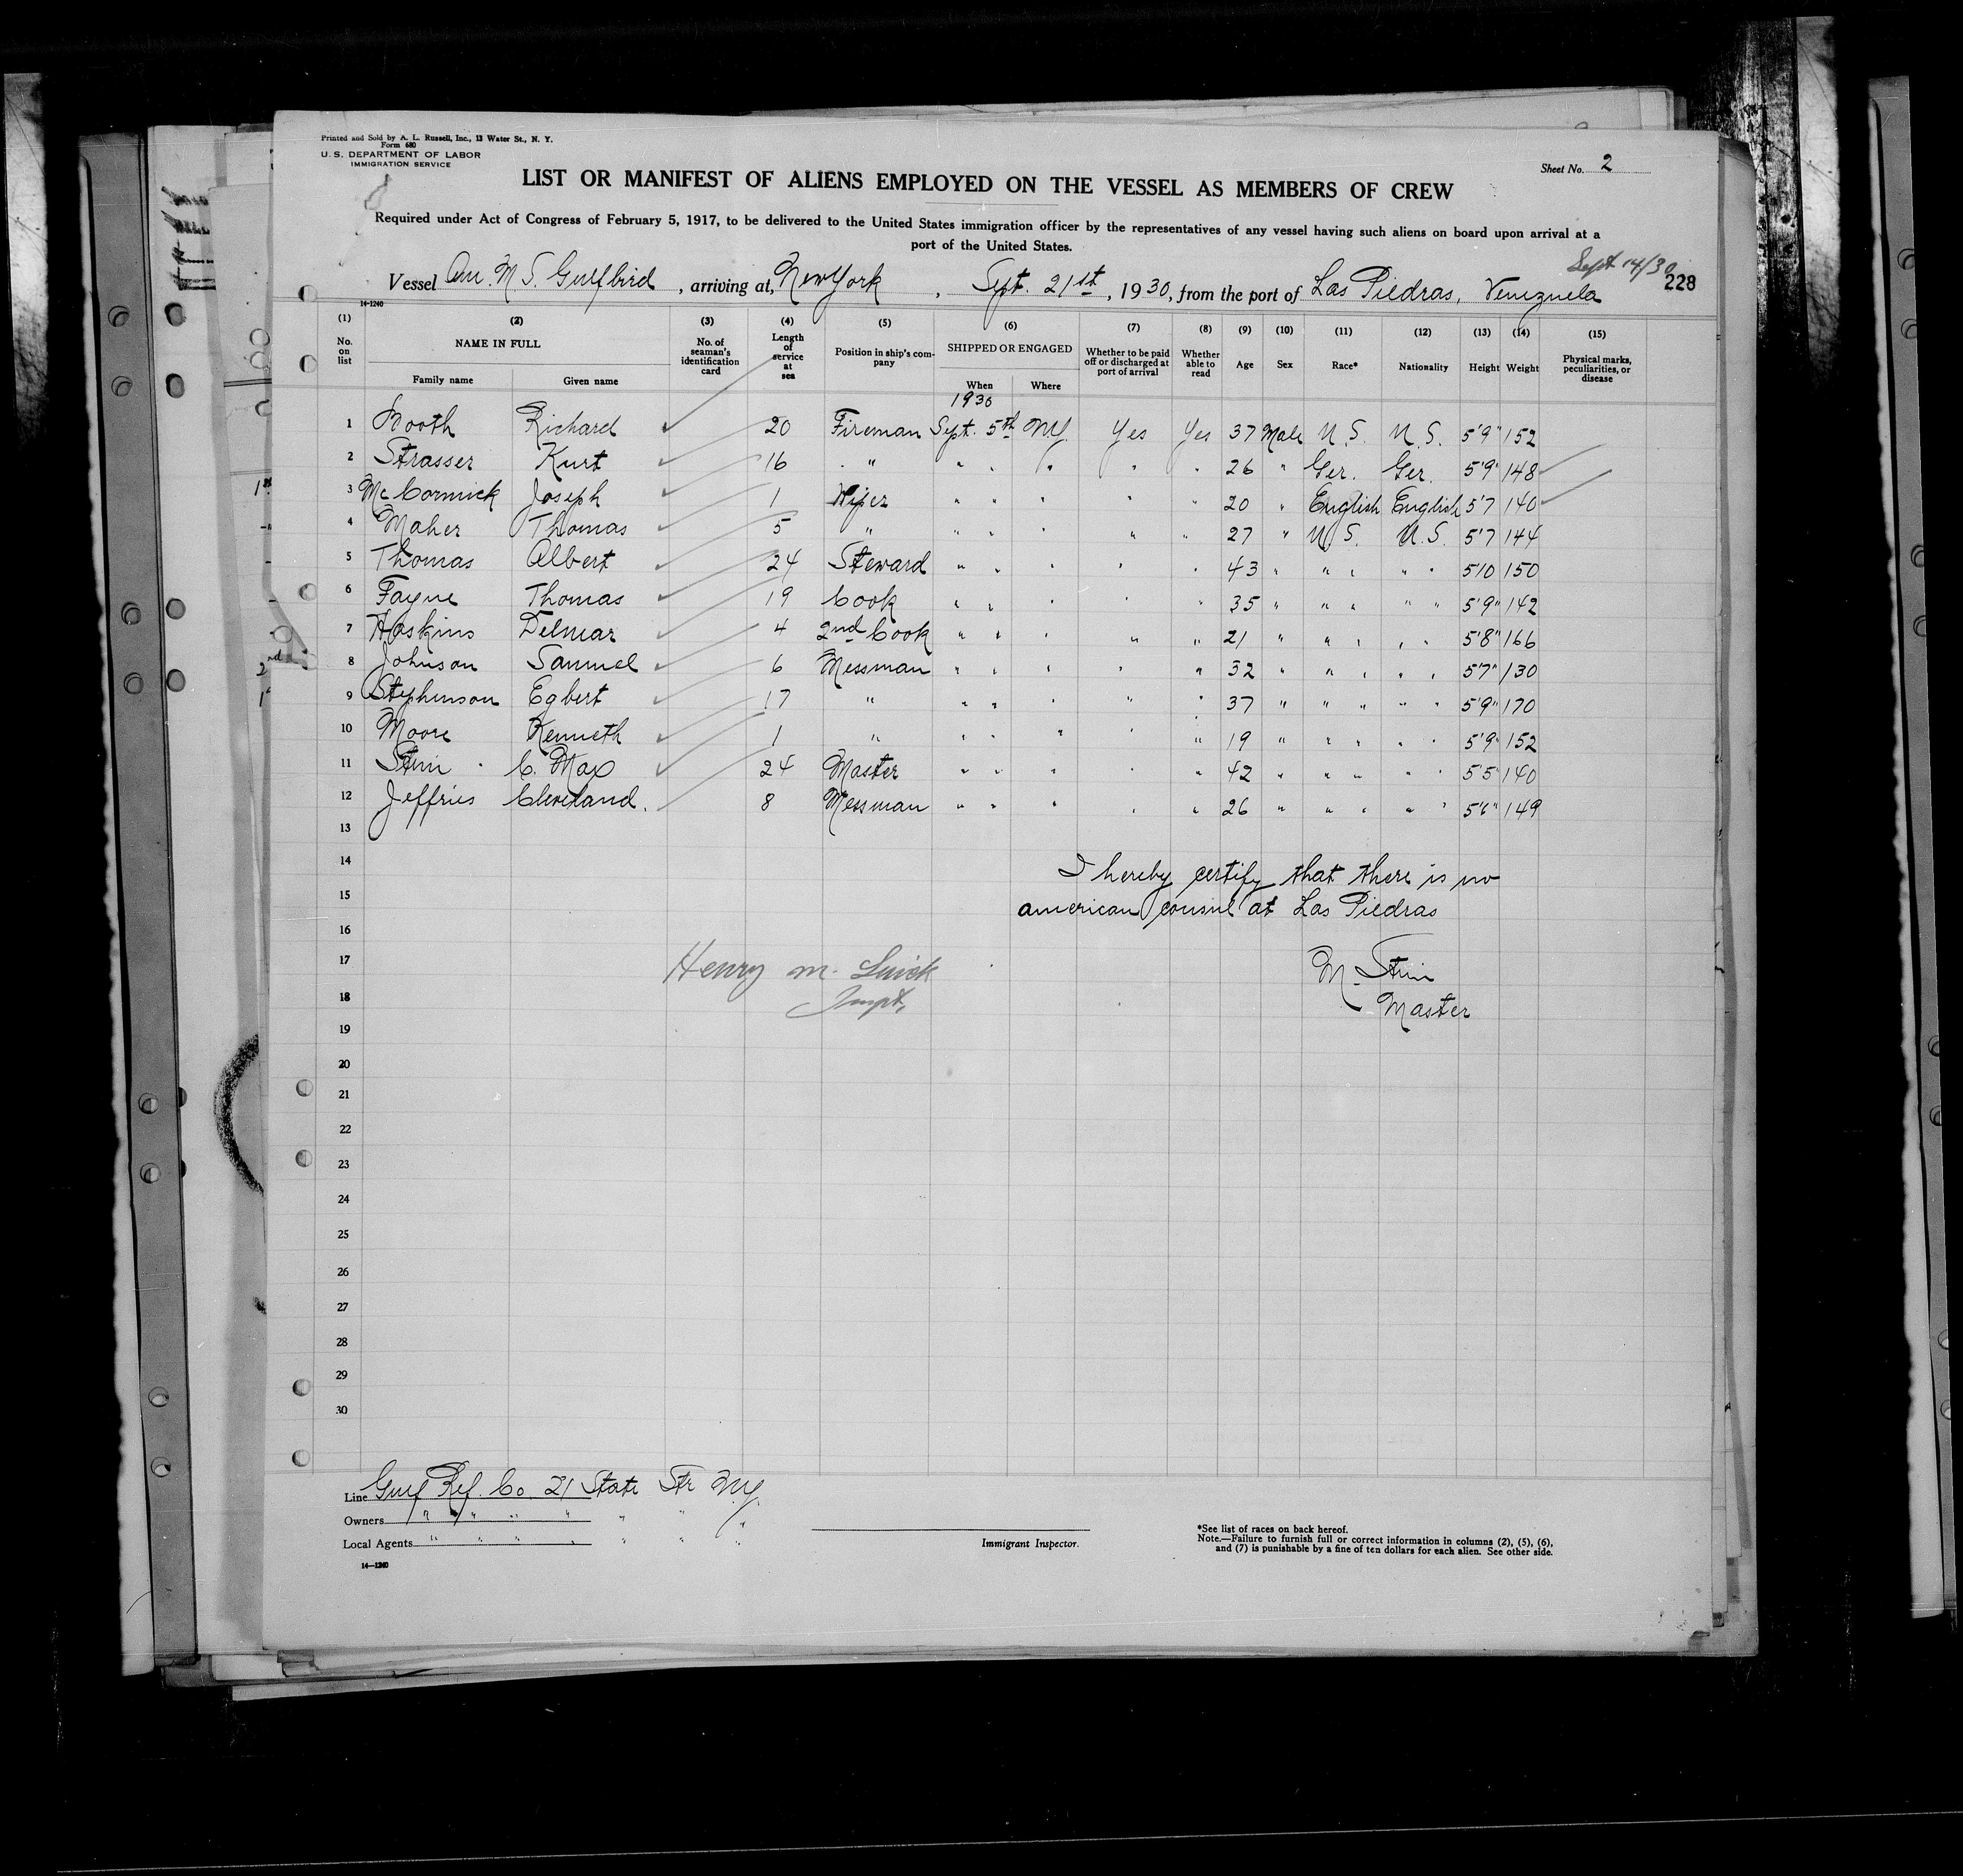 Printed and Sold by A. L. Russell, Inc., 13 Water St., N. Y.
Form 680
U. S. DEPARTMENT OF LABOR
IMMIGRATION SERVICE
Sheet No. 2
LIST OR MANIFEST OF ALIENS EMPLOYED ON THE VESSEL AS MEMBERS OF CREW
Required under Act of Congress of February 5, 1917, to be delivered to the United States immigration officer by the representatives of any vessel having such aliens on board upon arrival at a
port of the United States.
Sept 14/30
228
Vessel Am. M S. Gulfbird, arriving at, New York, Sept. 21st, 1930, from the port of Las Piedras, Venezuela
14-1240
(1) (2) (3) (4) (5) (6) (7) (8) (9) (10) (11) (12) (13) (14) (15)
No. on list NAME IN FULL Family name Given name No. of seaman's identification card Length of service at sea Position in ship's company SHIPPED OR ENGAGED When Where Whether to be paid off or discharged at port of arrival Whether able to read Age Sex Race* Nationality Height Weight Physical marks, peculiarities, or disease
1930
1 Booth Richard 20 Fireman Sept. 5th N.Y. Yes Yes 37 Male U.S. U.S. 5'9" 152
2 Strasser Kurt 16 " " " " " " 26 " Ger. Ger. 5'9" 148
3 McCormick Joseph 1 Wiper " " " " " 20 " English English 5'7 140
4 Maher Thomas 5 " " " " " " 27 " U.S. U.S. 5'7 144
5 Thomas Albert 24 Steward " " " " " 43 " " " " " 5'10 150
6 Fayne Thomas 19 Cook " " " " " 35 " " " " " 5'9" 142
7 Haskins Delmar 4 2nd Cook " " " " " 21 " " " " " 5'8" 166
8 Johnson Samuel 6 Messman " " " " " 32 " " " " " 5'7" 130
9 Stephenson Egbert 17 " " " " " " 37 " " " " " 5'9" 170
10 Moore Kenneth 1 " " " " " " 19 " " " " " 5'9" 152
11 C. Max 24 Master " " " " " 42 " " " " " 5'5 140
12 Jeffries Cleveland. 8 Messman " " " " " 26 " " " " " 5'6" 149
13
14
15
16
17
18
19
20
21
22
23
24
25
26
27
28
29
30
I hereby certify that there is no
american consul at Las Piedras
Henry M.
Inspt.
M.
Master
Line Gulf Ref. Co. 21 State Str N.Y.
Owners " " " " " " " "
Local Agents " " " " " " " "
14—1240
Immigrant Inspector.
*See list of races on back hereof.
Note.—Failure to furnish full or correct information in columns (2), (5), (6),
and (7) is punishable by a fine of ten dollars for each alien. See other side.